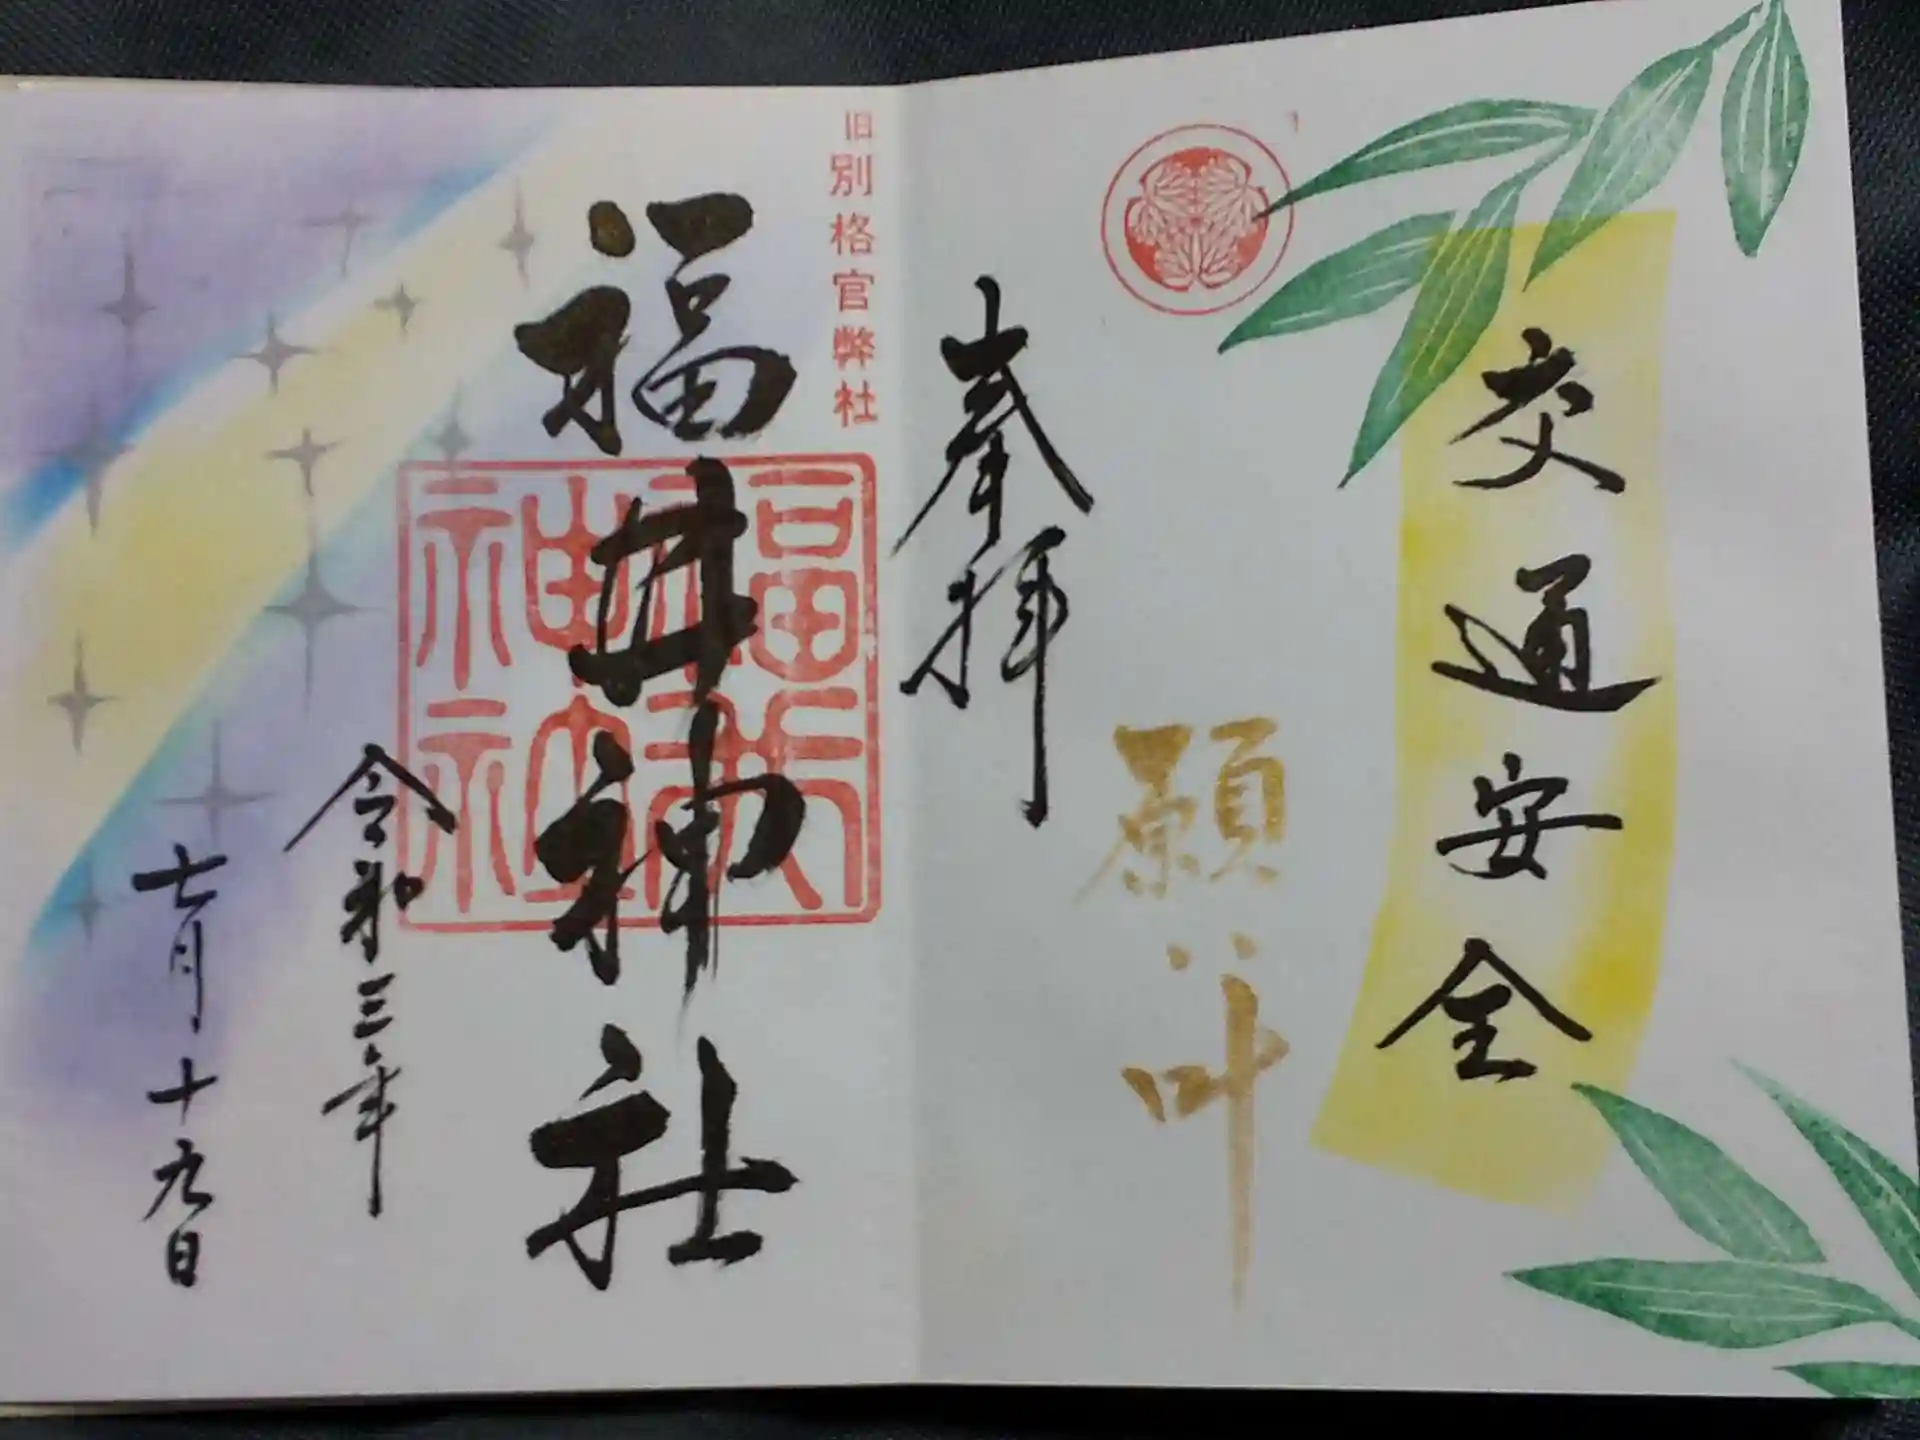 交通安全
願叶
奉拝
旧別格官幣社
福井神社
令和三年
七月十九日